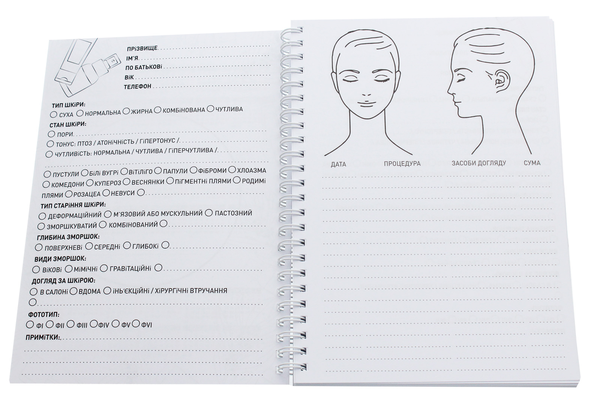 ПРІЗВИЩЕ
ІМ'Я
ПО БАТЬКОВІ
ВІК
ТЕЛЕФОН
ТИП ШКІРИ:
СУХА НОРМАЛЬНА ЖИРНА КОМБІНОВАНА ЧУТЛИВА
СТАН ШКІРИ:
ПОРИ
ТОНУС: ПТОЗ / АТОНІЧНІСТЬ / ГІПЕРТОНУС /
ЧУТЛИВІСТЬ: НОРМАЛЬНА / ЧУТЛИВА / ГІПЕРЧУТЛИВА /
ПУСТУЛИ БІЛІ ВУГРІ ВІТІЛІГО ПАПУЛИ ФІБРОМИ ХЛОАЗМА
КОМЕДОНИ КУПЕРОЗ ВЕСНЯНКИ ПІГМЕНТНІ ПЛЯМИ РОДИМІ
ПЛЯМИ РОЗАЦЕА НЕВУСИ
ТИП СТАРІННЯ ШКІРИ:
ДЕФОРМАЦІЙНИЙ М'ЯЗОВИЙ АБО МУСКУЛЬНИЙ ПАСТОЗНИЙ
ЗМОРШКУВАТИЙ КОМБІНОВАНИЙ
ГЛИБИНА ЗМОРШОК:
ПОВЕРХНЕВІ СЕРЕДНІ ГЛИБОКІ
ВИДИ ЗМОРШОК:
ВІКОВІ МІМІЧНІ ГРАВІТАЦІЙНІ
ДОГЛЯД ЗА ШКІРОЮ:
В САЛОНІ ВДОМА ІН'ЄКЦІЙНІ / ХІРУРГІЧНІ ВТРУЧАННЯ
ФОТОТИП:
ФІ ФІІ ФІІІ ФIV ФV ФVI
ПРИМІТКИ:
ДАТА ПРОЦЕДУРА ЗАСОБИ ДОГЛЯДУ СУМА